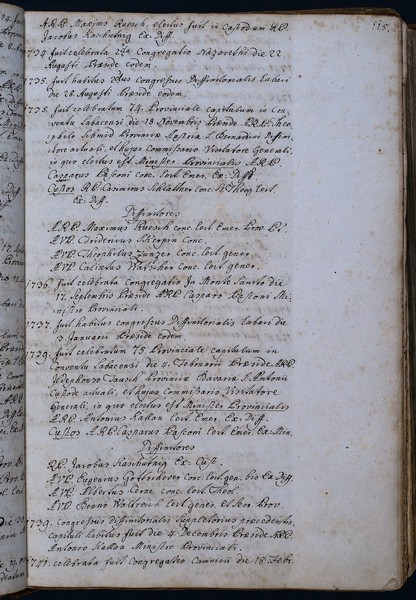 A.R.P. Maxims Ruesch. electus fuit in Custodem R.P.
Jacobus Kashutnig Ex: Diff.
1734. fuit celebrata 2da Congregatio Nazarethi die 22
Augusti Præside eodem.
1735. fuit habitus Congressus Diffinitorialis Labaci
die 28 Augusti Præside eodem.
1735. fuit celebratum 74. Provinciale capitulum in Con-
ventu Labacensi die 18 Novembris Præside A.R.P. Theo-
philo Schmid Provinciæ S. Bernardini Diffini-
tore actuali, et hujus Commissario Visitatore Generali,
in quo electus est Minister Provincialis A.R.P.
Casparus Pasconi conc. Lect. Emer. Ex: Diff.
Custos R.P. Casimirus Schlatther conc. Lect.
Ex: Diff.
Diffinitores
A.R.P. Maximus Ruesch conc. Lect. Emer. Prov. P.
A.V.P. Sticopin Conc.
A.V.P. Theophilus Zunzer conc. Lect. gener.
A.V.P. Calixtus Watscher Conc. Lect. gener.
1736. fuit celebrata Congregatio In Monte Santo die
17. Septembris Præside A.R.P. Casparo Pasconi Mi-
nistro Provinciali.
1737. fuit habitus congressus Diffinitorialis Labaci die
3 Januarii Præside eodem.
1739. fuit celebratum 75 Provinciale capitulum in
Conventu Labacensi die 4. Februarii Præside A.R.P.
Ildephonso Tausch Provinciæ Bavariæ S. Antonii
Custode actuali, et hujus commissario Visitatore
Generali, in quo electus est Minister Provincialis
A.R.P. Antonius Kallan Lect. Emer. Ex: Diff.
Custos A.R.P. Casparus Pasconi Lect. Emer. Ex: Min.
Diffinitores
R.P. Jacobus Kashutnig Ex: Cust.
A.V.P. Eugenius conc. Lect. gen. bis Ex: Diff.
A.V.P. Albertus Zerne conc. Lect. Theol.
A.V.P. Benno Waltreich Lect. gener. et Secr. Prov.
1739. Congressus diffinitorialis supplectorius præcedentis
capituli habitus fuit die 4 Decembris Præside A.R.P.
Antonio Kallan Ministro Provinciali.
1741. celebrata fuit Congregatio Camnicii die 18 Febr.